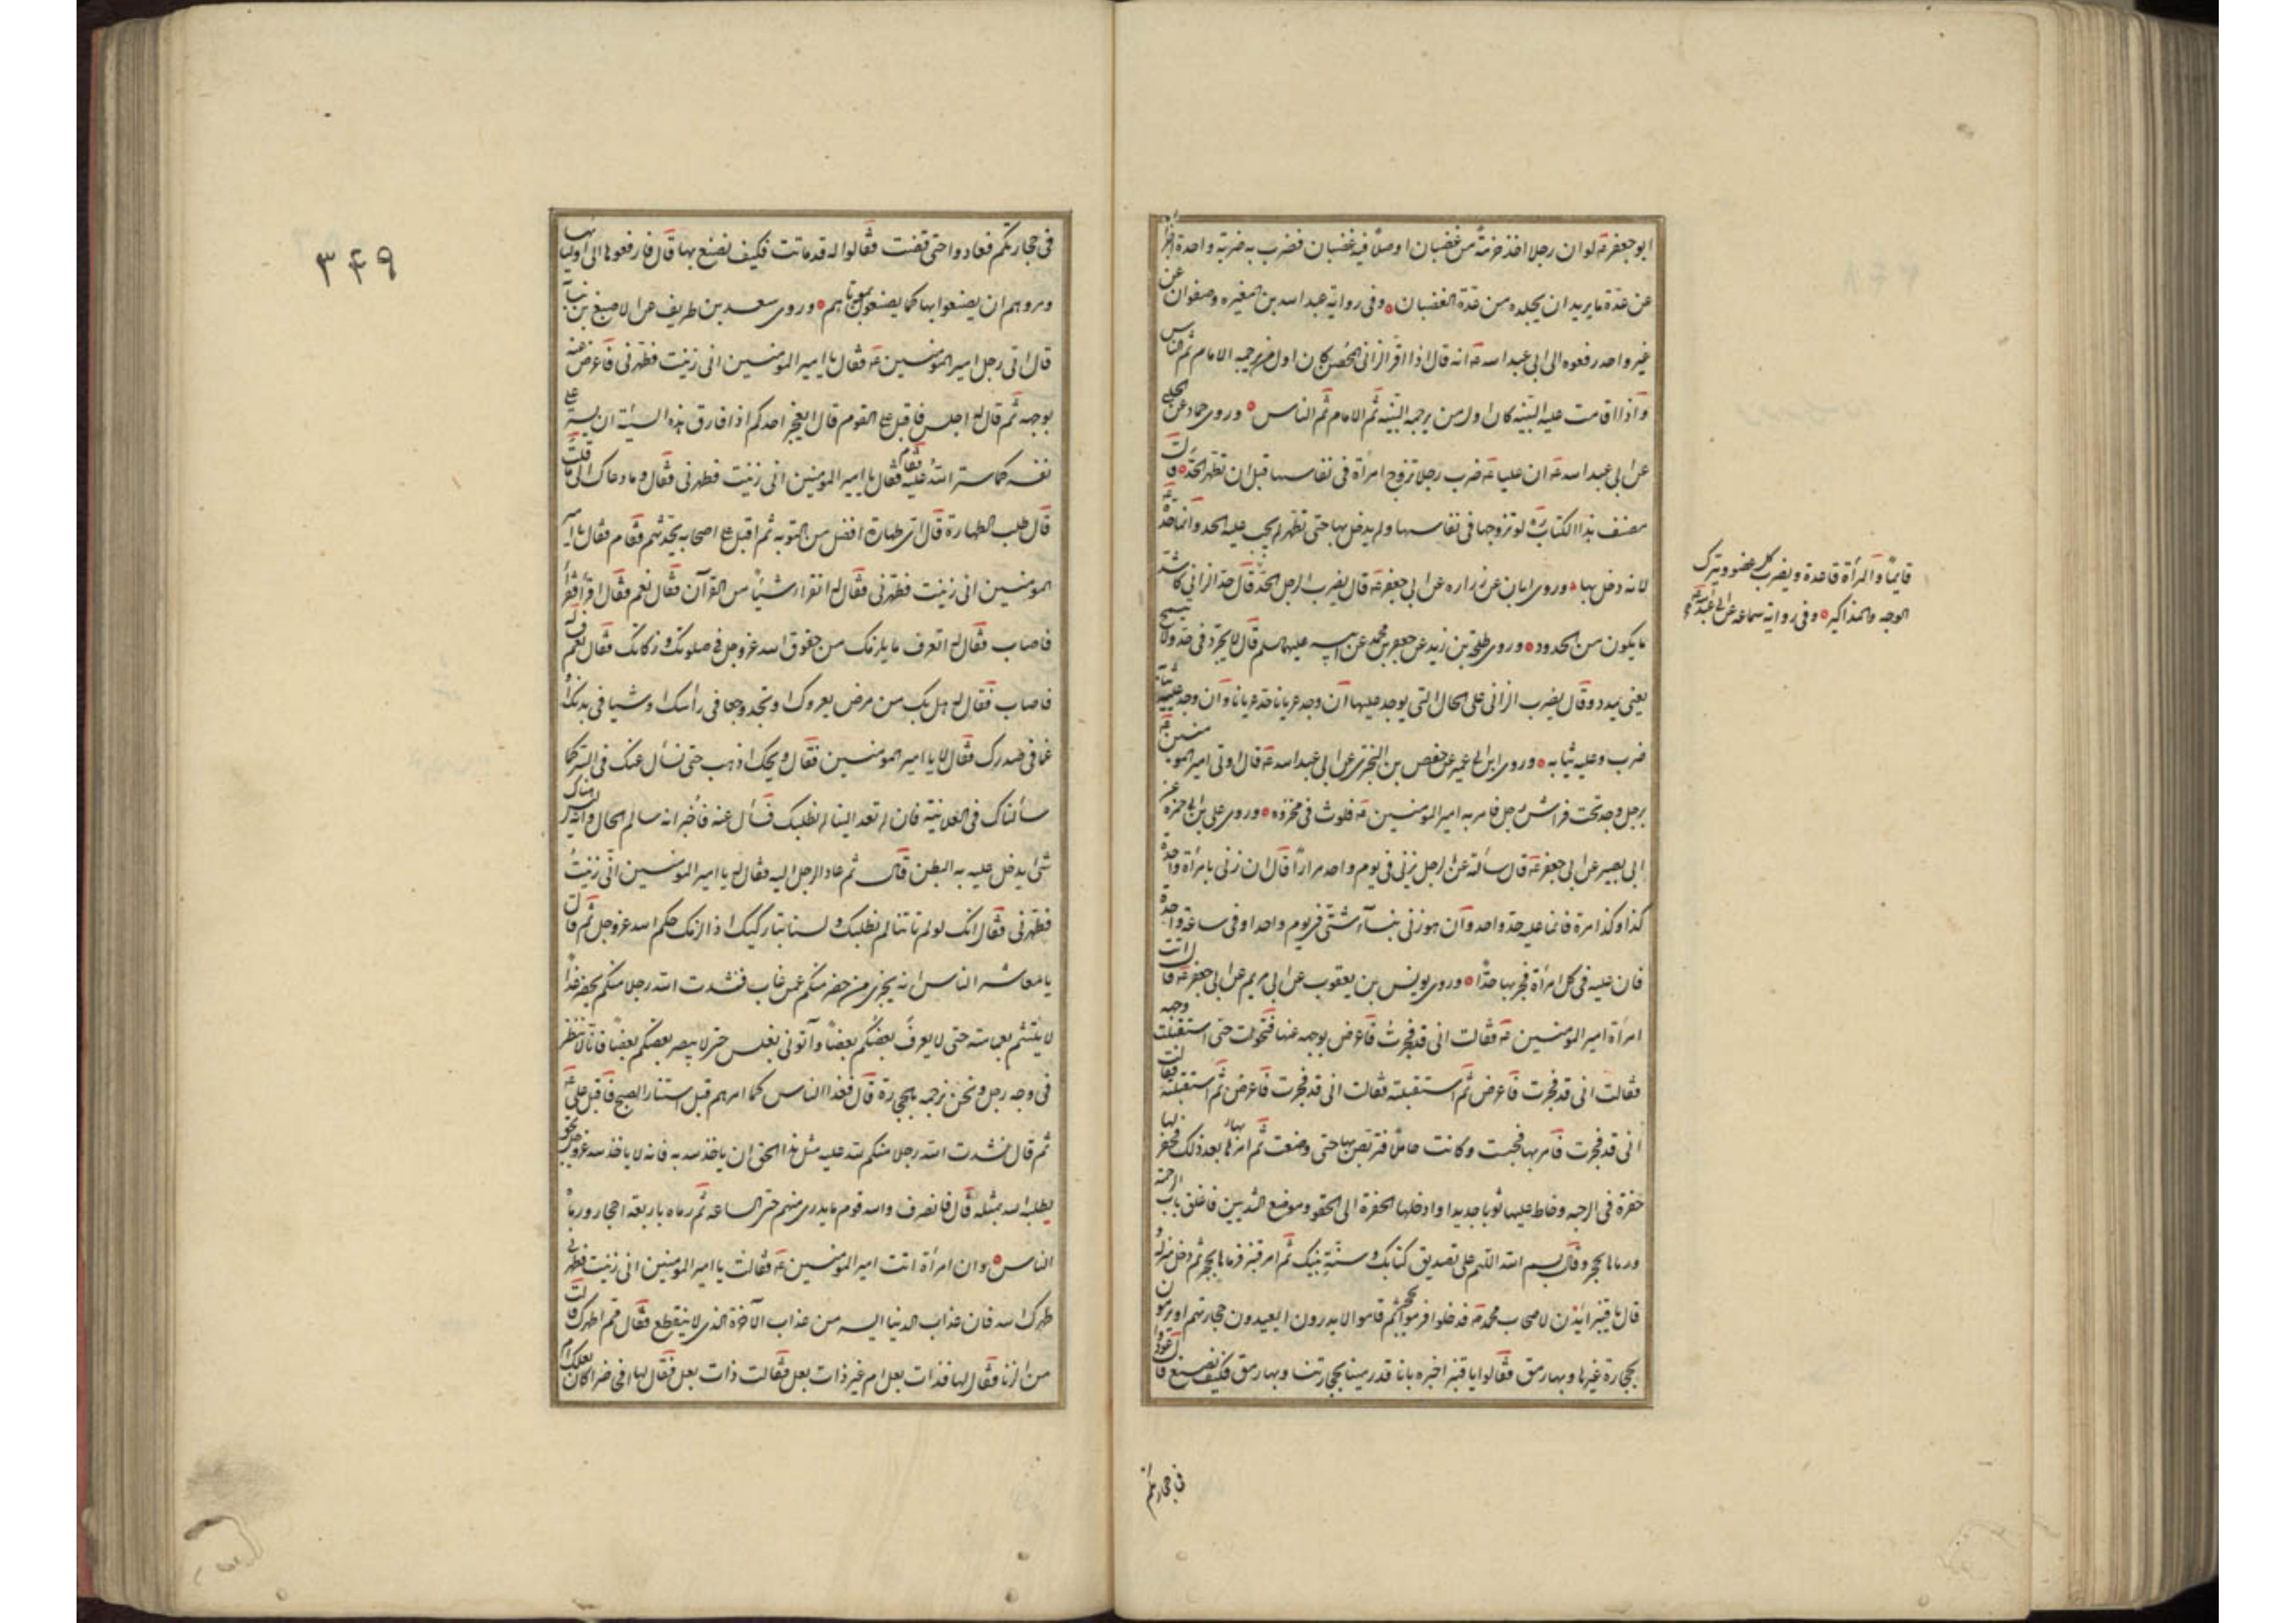 ابو جعفر ع لو ان رجلا اخذ حزمة من قضبان او اصلا فيه قضبان فضرب به ضربة واحدة اجزأه
عن عدة ما يريد ان يجلده من عدة القضبان وفى رواية عبد الله بن المغيرة وصفوان عن
غير واحد رفعوه الى ابى عبد الله ع انه قال اذا اقر الزانى المحصن كان اول من يرجمه الامام ثم الناس
واذا قامت عليه البينة كان اول من يرجمه البينة ثم الامام ثم الناس وروى حماد عن الحلبى
عن ابى عبد الله ع ان عليا ع ضرب رجلا تزوج امرأة فى نفاسها قبل ان تطهر الحد قال
مصنف هذا الكتاب ره لو تزوجها فى نفاسها ولم يدخل بها حتى تطهر لم يجب عليه الحد وانما حده ع
لانه دخل بها وروى ابان عن زرارة عن ابى جعفر ع قال يضرب الرجل الحد قال حد الزانى كاشد
ما يكون من الحدود وروى طلحة بن زيد عن جعفر بن محمد عن ابيه عليهما السلم قال لا يجرد فى حد ولا يشبح
يعنى يمدد وقال يضرب الزانى على الحال التى يوجد عليها ان وجد عريانا حد عريانا وان وجد عليه ثيابه
ضرب وعليه ثيابه وروى ابن ابى عمير عن حفص بن البخترى عن ابى عبد الله ع قال اوتى امير المومنين ع
برجل وجد تحت فراش رجل فامر به امير المومنين ع فلوث فى مخروة وروى على بن ابى حمزة عن
ابى بصير عن ابى جعفر ع قال سألته عن الرجل يزنى فى يوم واحد مرارا قال ان زنى بامرأة واحدة
كذا وكذا مرة فانما عليه حد واحد وان هو زنى بنسآء شتى فى يوم واحد او فى ساعة واحدة
فان عليه فى كل امرأة فجر بها حدا وروى يونس بن يعقوب عن ابى مريم عن ابى جعفر ع قال اتت
امرأة امير المومنين ع فقالت انى قد فجرت فاعرض بوجهه عنها فتحولت حتى استقبلت وجهه
فقالت انى قد فجرت فاعرض ثم استقبلته فقالت انى قد فجرت فاعرض ثم استقبلته فقالت
انى قد فجرت فامر بها فحبست وكانت حاملا فتربص بها حتى وضعت ثم امر بها بعد ذلك فحفر لها
حفرة فى الرحبة وخاط عليها ثوبا جديدا وادخلها الحفرة الى الحقو وموضع الثديين فاغلق باب الرحبة
ورماها بحجر وقال بسم الله اللهم على تصديق كتابك وسنة نبيك ثم امر قنبر فرماها بحجر ثم دخل منزله
قال يا قنبر ائذن لاصحاب محمد ص فدخلوا فرموا بحجر ثم قاموا لا يدرون ايعيدون حجارتهم او يرمون
بحجارة غيرها وبها رمق فقالوا يا قنبر اخبره بانا قد رمينا بحجارتنا وبها رمق فكيف نصنع قال عودوا
قايما والمرأة قاعدة ويضرب كل عضو ويترك
الوجه والمذاكير وفى رواية سماعة عن ابى عبد الله ع
فى حجارتكم
٣۴٩
فى حجارتكم فعادوا حتى قضت فقالوا له قد ماتت فكيف نصنع بها قال فارفعوها الى اوليائها
ومروهم ان يصنعوا بها كما يصنعون بموتاهم وروى سعد بن طريف عن الاصبغ بن نباتة
قال اتى رجل امير المومنين ع فقال يا امير المومنين انى زنيت فطهرنى فاعرض عنه
بوجهه ثم قال له اجلس فاقبل على القوم قال ايعجز احدكم اذا قارف هذه السيئة ان يستر على
نفسه كما ستر الله عليه فقام فقال يا امير المومنين انى زنيت فطهرنى فقال وما دعاك الى ما قلت
قال طلب الطهارة قال اى طهارة افضل من التوبة ثم اقبل على اصحابه يحدثهم فقام فقال يا امير
المومنين انى زنيت فطهرنى فقال له اتقرأ شيئا من القرآن فقال نعم فقال اقرأ فقرأ
فاصاب فقال له اتعرف ما يلزمك من حقوق الله عز وجل فى صلوتك وزكاتك فقال نعم فسأله
فاصاب فقال له هل بك من مرض يعروك او تجد وجعا فى رأسك او شيا فى بدنك او
غما فى صدرك فقال لا يا امير المومنين فقال ويحك اذهب حتى نسأل عنك فى السر كما
سألناك فى العلانية فان لم تعد الينا لم نطلبك فسأل عنه فاخبر انه سالم الحال وانه ليس هناك
شئ يدخل عليه به الظن قال ثم عاد الرجل اليه فقال له يا امير المومنين انى زنيت
فطهرنى فقال انك لو لم تاتنا لم نطلبك ولسنا بتاركيك اذا لزمك حكم الله عز وجل ثم قال
يا معاشر الناس انه يجزى من حضر منكم عمن غاب فنشدت الله رجلا منكم يحضر غدا
لا يتلثم بعمامته حتى لا يعرف بعضكم بعضا واتونى بغلس حتى لا يبصر بعضكم بعضا فانا لا ننظر
فى وجه رجل ونحن نرجمه بالحجارة قال فغدا الناس كما امرهم قبل استنار الصبح فاقبل على ع
ثم قال نشدت الله رجلا منكم لله عليه مثل هذا الحق ان ياخذ لله به فانه لا ياخذ لله عز وجل بحق من
يطلبه الله بمثله قال فانصرف والله قوم ما يدرى منهم حتى الساعة ثم رماه باربعة احجار ورماه
الناس وان امرأة اتت امير المومنين ع فقالت يا امير المومنين انى زنيت فطهرنى
طهرك الله فان عذاب الدنيا ايسر من عذاب الآخرة الذى لا ينقطع فقال مم اطهرك قالت
من الزنا فقال لها فذات بعل ام غير ذات بعل فقالت ذات بعل فقال لها افحاضرا كان بعلك ام